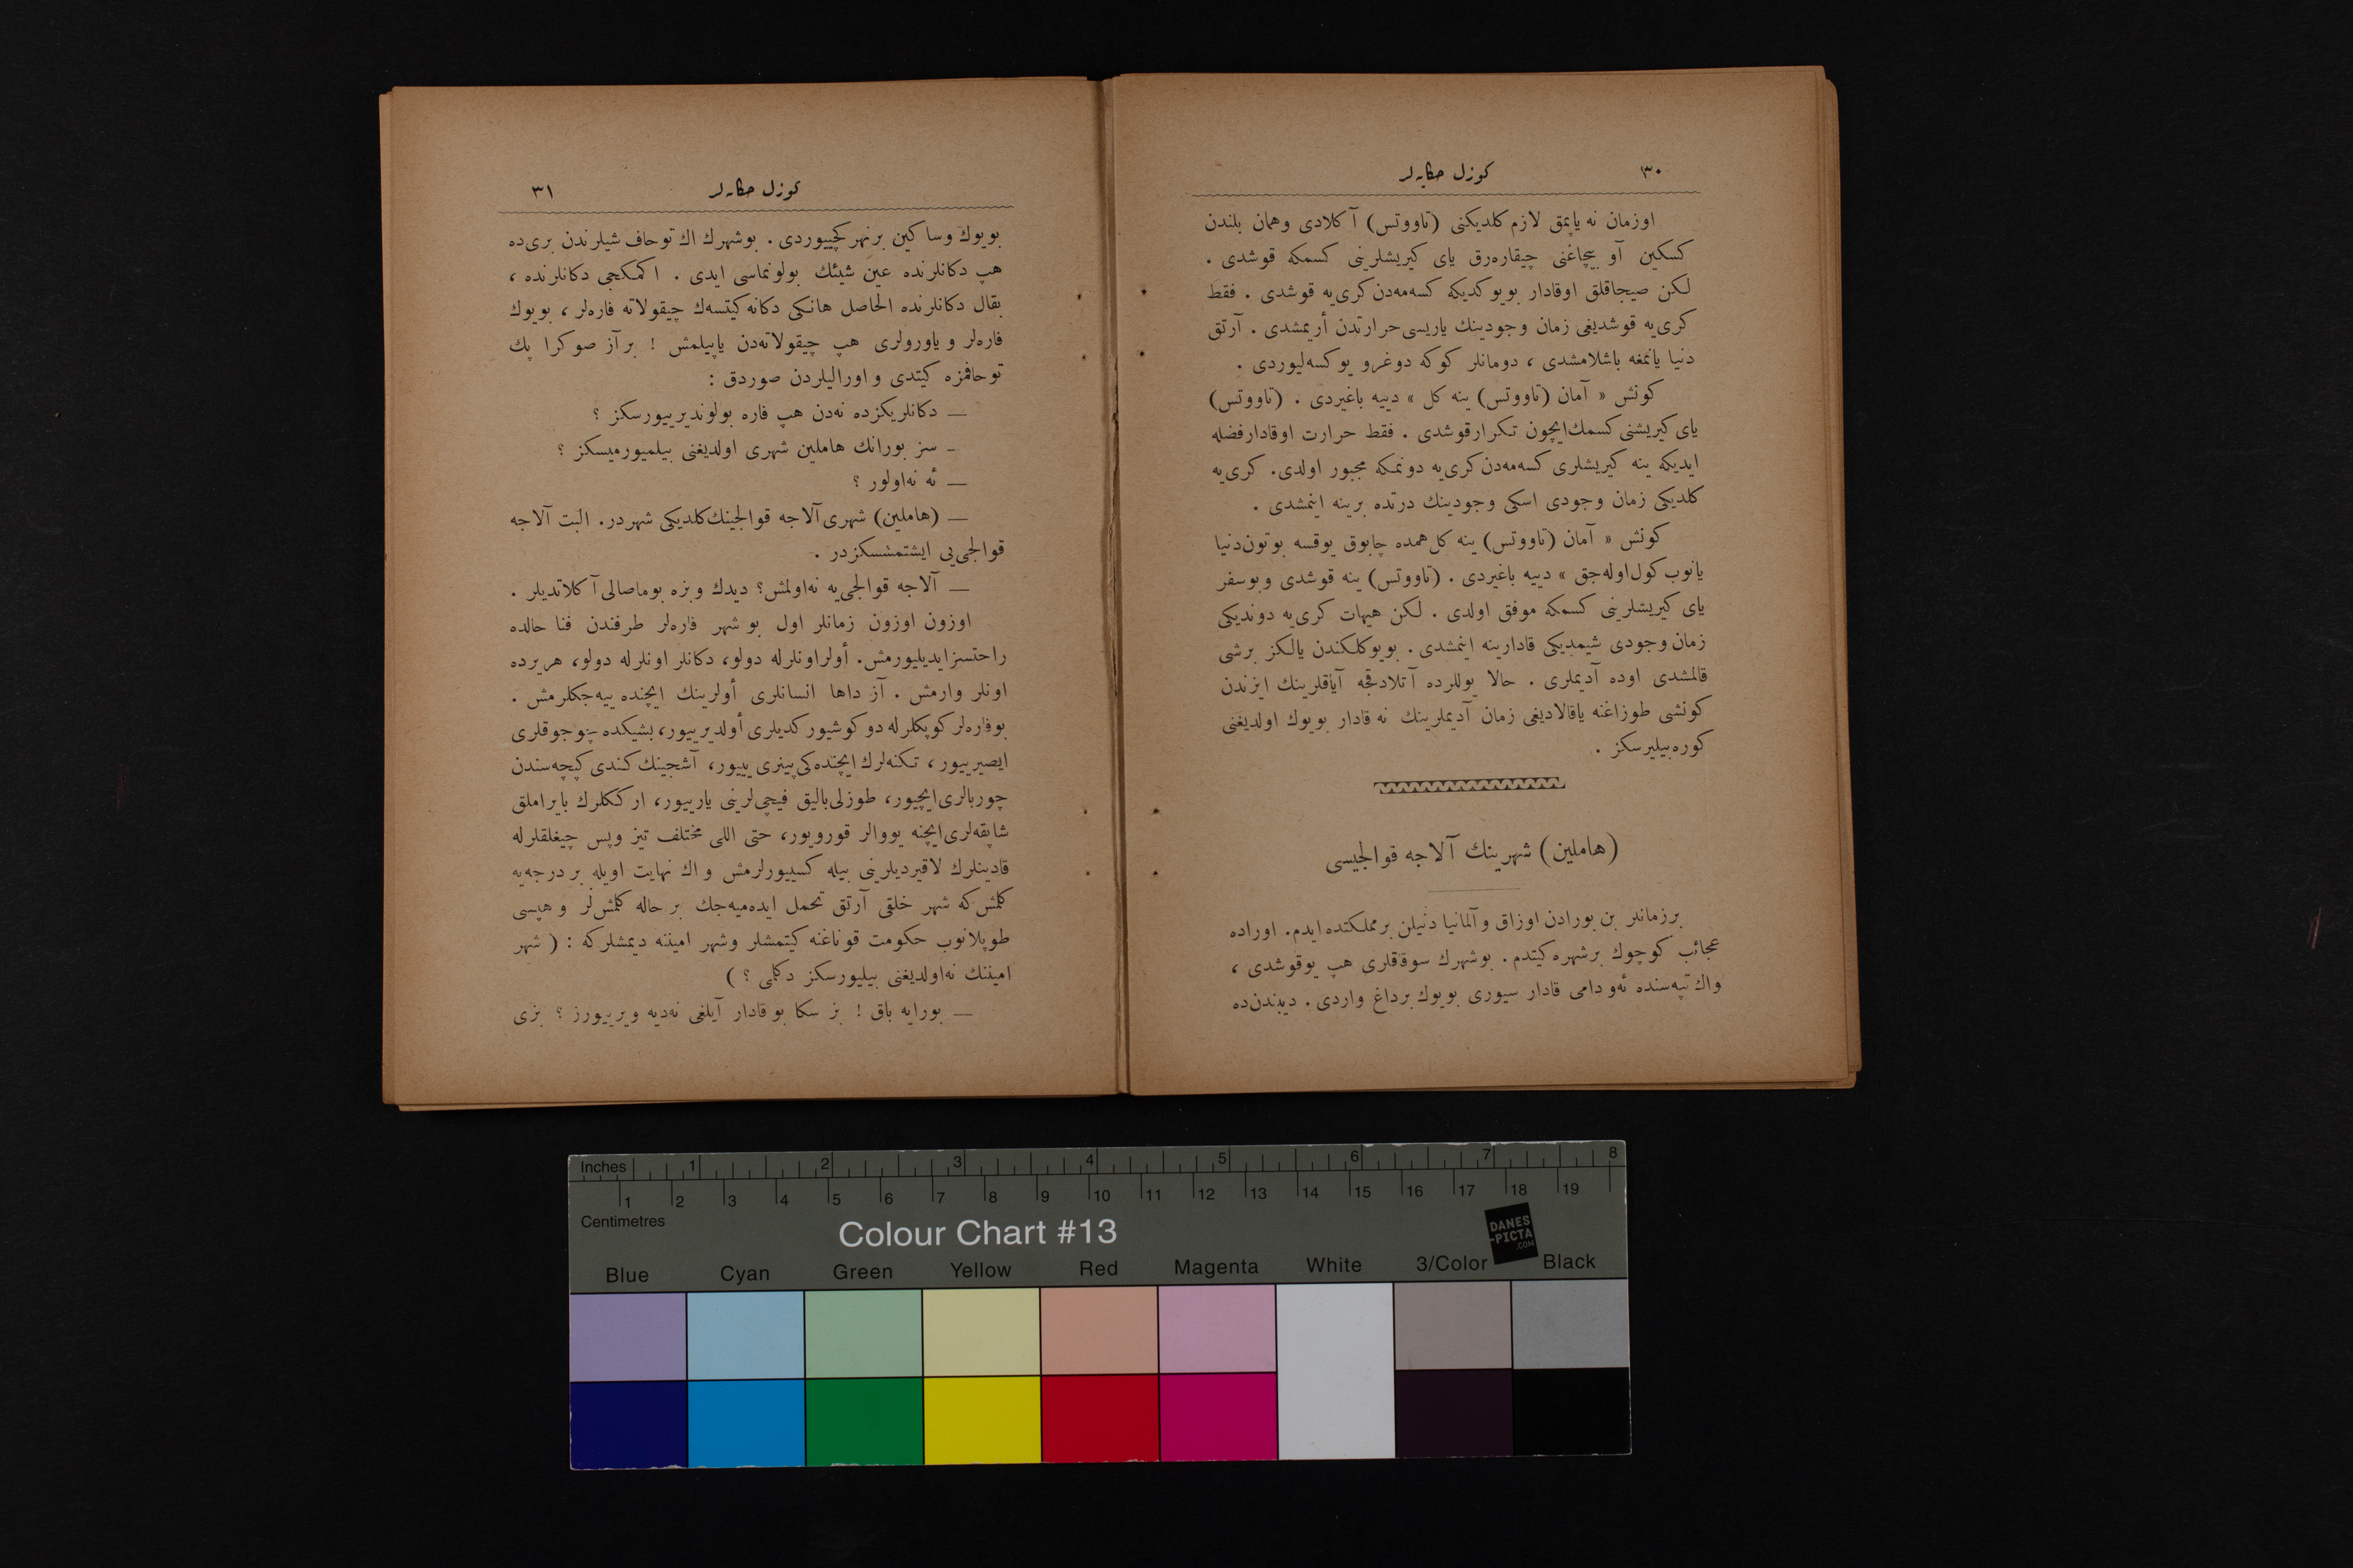 ٣٠
كوزل حكايه‌لر
اوزمان نه ياپمق لازم كلديكنى (تاووتس) آكلادى وهمان بلندن
كسكين آو بيچاغنى چيقاره‌رق ياى كيريشلرينى كسمكه قوشدى .
لكن صيجاقلق اوقادار بويوكديكه كسه‌مه‌دن كرى‌يه قوشدى . فقط
كرى‌يه قوشديغى زمان وجودينك ياريسى حرارتدن أريمشدى . آرتق
دنيا يانمغه باشلامشدى ، دومانلر كوكه دوغرو يوكسه‌ليوردى .
كونش « آمان (تاووتس) ينه كل » دييه باغيردى . (تاووتس)
ياى كيريشنى كسمك‌ايچون تكرارقوشدى . فقط حرارت اوقادارفضله
ايديكه ينه كيريشلرى كسه‌مه‌دن كرى‌يه دونمكه مجبور اولدى. كرى‌يه
كلديكى زمان وجودى اسكى وجودينك درتده برينه اينمشدى .
كونش « آمان (تاووتس) ينه كل همده چابوق يوقسه بوتون‌دنيا
يانوب كول‌اوله‌جق » دييه باغيردى . (تاووتس) ينه قوشدى وبوسفر
ياى كيريشلرينى كسمكه موفق اولدى . لكن هيهات كرى‌يه دونديكى
زمان وجودى شيمديكى قادارينه اينمشدى . بويوكلكندن يالكز برشى
قالمشدى اوده آديملرى . حالا يوللرده آتلادقجه آياقلرينك ايزندن
كونشى طوزاغنه ياقالاديغى زمان آديملرينك نه قادار بويوك اولديغنى
كوره‌بيليرسكز .
(هاملين) شهرينك آلاجه قوالجيسى
برزمانلر بن بورادن اوزاق وآلمانيا دنيلن برمملكتده ايدم. اوراده
عجائب كوچوك برشهره كيتدم. بوشهرك سوقاقلرى هپ يوقوشدى ،
واك تپه‌سنده ئه‌و دامى قادار سيورى بويوك برداغ واردى . ديبندن‌ده
كوزل حكايه‌لر
٣١
بويوك وساكين برنهر كچييوردى . بوشهرك اك توحاف شيلرندن برى‌ده
هپ دكانلرنده عين شيئك بولونماسى ايدى . اكمكجى دكانلرنده ،
بقال دكانلرنده الحاصل هانكى دكانه كيتسه‌ك چيقولاته فاره‌لر ، بويوك
فاره‌لر و ياورولرى هپ چيقولاته‌دن ياپيلمش ! برآز صوكرا پك
توحافمزه كيتدى و اوراليلردن صوردق :
— دكانلريكزده نه‌دن هپ فاره بولونديرييورسكز ؟
- سز بورانك هاملين شهرى اولديغنى بيلميورميسكز ؟
— ئه نه‌اولور ؟
— (هاملين) شهرى آلاجه قوالجينك كلديكى شهردر. البت آلاجه
قوالجى‌يى ايشتمشسكزدر .
— آلاجه قوالجى‌يه نه‌اولمش؟ ديدك وبزه بوماصالى آكلاتديلر .
اوزون اوزون زمانلر اول بو شهر فاره‌لر طرفندن فنا حالده
راحتسزايديليورمش. أولراونلرله دولو، دكانلر اونلرله دولو، هريرده
اونلر وارمش . آز داها انسانلرى أولرينك ايچنده ييه‌جكلرمش .
بوفاره‌لر كوپكلرله دوكوشيور كديلرى أولديرييور، بشيكده چوجوقلرى
ايصيرييور ، تكنه‌لرك ايچنده‌كى پينرى يييور، آشجينك كندى كپچه‌سندن
چوربالرى‌ايچيور، طوزلى‌باليق فيچى‌لرينى يارييور، ارككلرك بايراملق
شاپقه‌لرى‌ايچنه يووالر قورويور، حتى اللى مختلف تيز وپس چيغلقلرله
قادينلرك لاقيرديلرينى بيله كسييورلرمش و اك نهايت اويله بر درجه‌يه
كلمش‌كه شهر خلقى آرتق تحمل ايده‌ميه‌جك بر حاله كلمش‌لر و هپسى
طوپلانوب حكومت قوناغنه كيتمشلر وشهر اميننه ديمشلركه : ( شهر
اميننك نه‌اولديغنى بيليورسكز دكلمى ؟ )
— بورايه باق ! بز سكا بوقادار آيلغى نه‌ديه ويرييورز ؟ بزى
Inches 1 2 3 4 5 6 7 8
1 2 3 4 5 6 7 8 9 10 11 12 13 14 15 16 17 18 19
Centimetres
Colour Chart #13
DANES
-PICTA
.COM
Blue Cyan Green Yellow Red Magenta White 3/Color Black